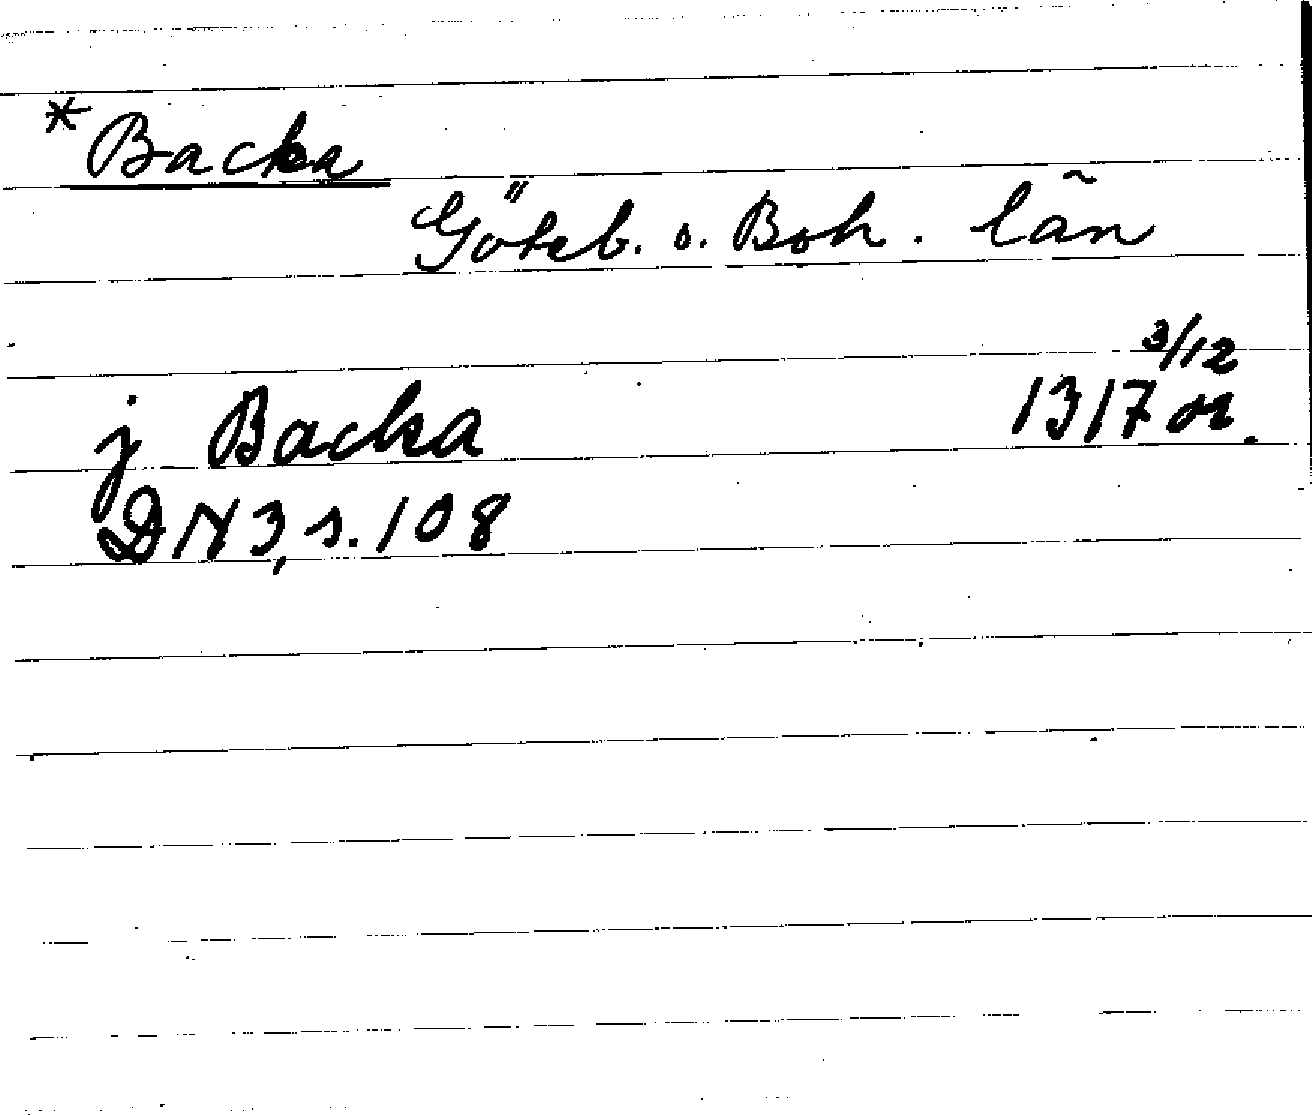 *Backa
Göteb. o. Boh. län
3/12
j Backa 1317 or.
DN 3, s. 108